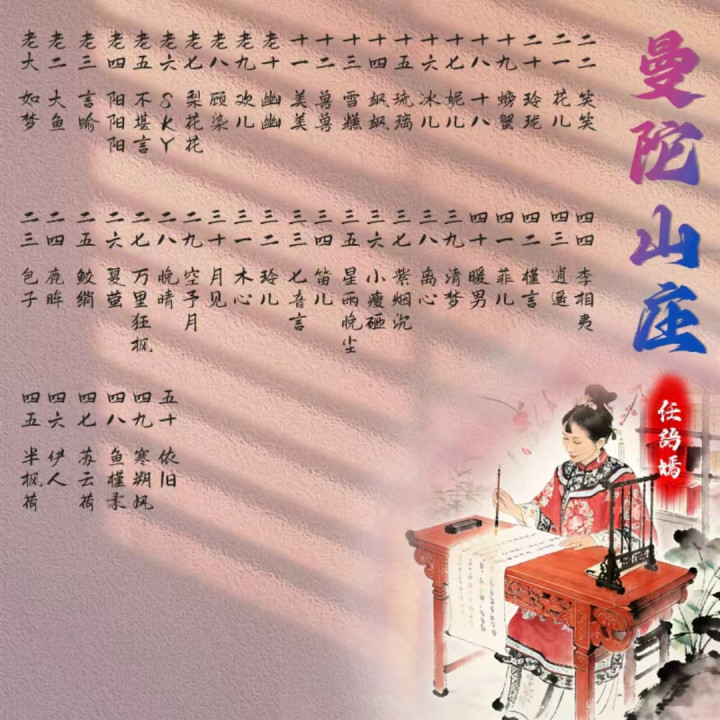 曼陀山庄
任語嫣
老大 如梦
老二 大鱼
老三 言喻
老四 阳阳阳
老五 不堪言
老六 SKY
老七 梨花花
老八 顾染
老九 欢儿
老十 幽幽
十一 美美
十二 兽兽
十三 雪糕
十四 飒飒
十五 琉璃
十六 冰儿
十七 妮儿
十八 十八
十九 螃蟹
二十 玲珑
二一 花儿
二二 笑笑
二三 包子
二四 鹿眸
二五 鲛绡
二六 夏萤
二七 万里狂枫
二八 晚晴
二九 空予月
三十 月见
三一 木心
三二 玲儿
三三 七音言
三四 笛儿
三五 星雨晚尘
三六 小瘦砸
三七 紫烟沉
三八 离心
三九 清梦
四十 暖男
四一 菲儿
四二 槿言
四三 逍遥
四四 李相夷
四五 半枫荷
四六 伊人
四七 苏云荷
四八 鱼槿豪
四九 寒朔风
五十 依旧